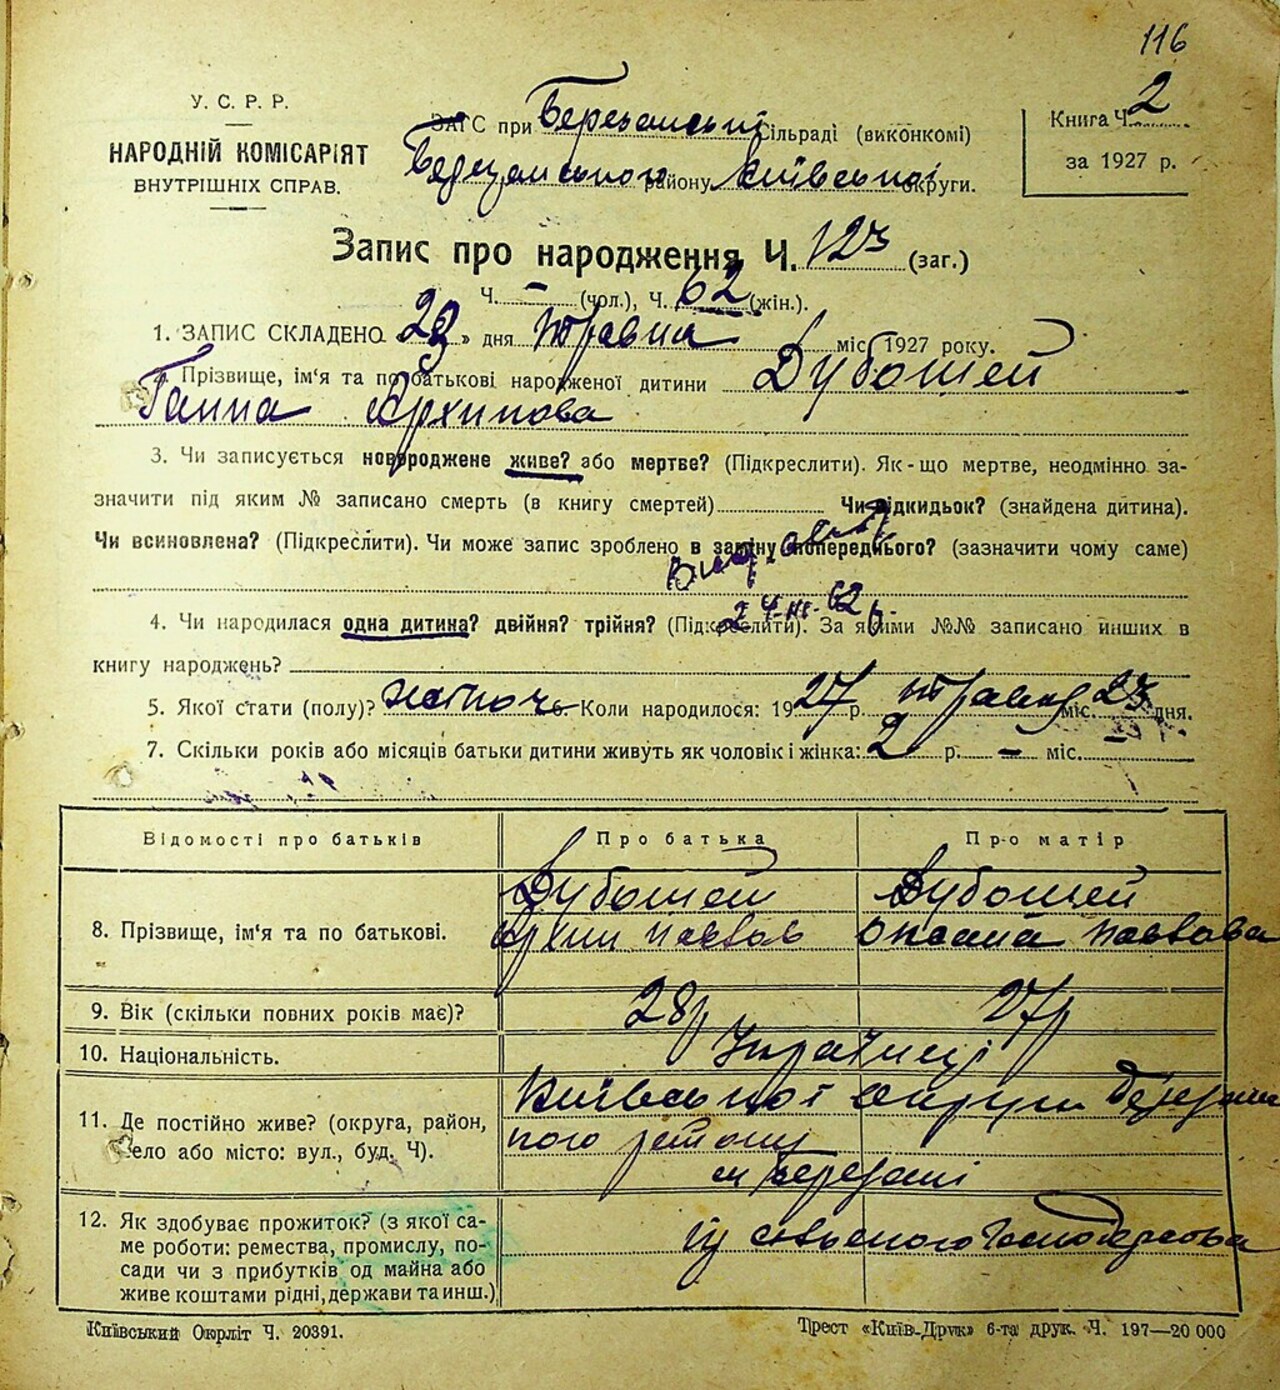 116
У. С. Р. Р.
НАРОДНІЙ КОМІСАРІЯТ
ВНУТРІШНІХ СПРАВ.
ЗАГС при Березанській Сільраді (виконкомі)
Березанського району Київської округи.
Книга Ч. 2
за 1927 р.
Запис про народження Ч. 123 (заг.)
Ч. - (чол.), Ч. 62 (жін.).
1. ЗАПИС СКЛАДЕНО 28 » дня травня міс. 1927 року.
Прізвище, ім'я та по батькові народженої дитини Дубошей
Ганна Архипова
3. Чи записується новороджене живе? або мертве? (Підкреслити). Як-що мертве, неодмінно за-
значити під яким № записано смерть (в книгу смертей) Чи підкидьок? (знайдена дитина).
Чи всиновлена? (Підкреслити). Чи може запис зроблено в заміну попереднього? (зазначити чому саме)
4. Чи народилася одна дитина? двійня? трійня? (Підкреслити). За якими №№ записано инших в
книгу народжень?
5. Якої стати (полу)? жіноч 6. Коли народилося: 1927 р. травня міс. 23 дня.
7. Скільки років або місяців батьки дитини живуть як чоловік і жінка: 2 р. — міс. —
Відомості про батьків
Про батька
Про матір
8. Прізвище, ім'я та по батькові.
Дубошей
Архип Павлов
Дубошей
Оксана Павлова
9. Вік (скільки повних років має)?
28 р
27 р
10. Національність.
Українці
11. Де постійно живе? (округа, район,
село або місто: вул., буд. Ч).
Київської округи Березанс
кого району
м Березані
12. Як здобуває прожиток? (з якої са-
ме роботи: ремества, промислу, по-
сади чи з прибутків од майна або
живе коштами рідні, держави та инш.)
із сільського господарства
Київський Окрліт Ч. 20391.
Трест «Київ-Друк» 6-та друк. Ч. 197—20 000